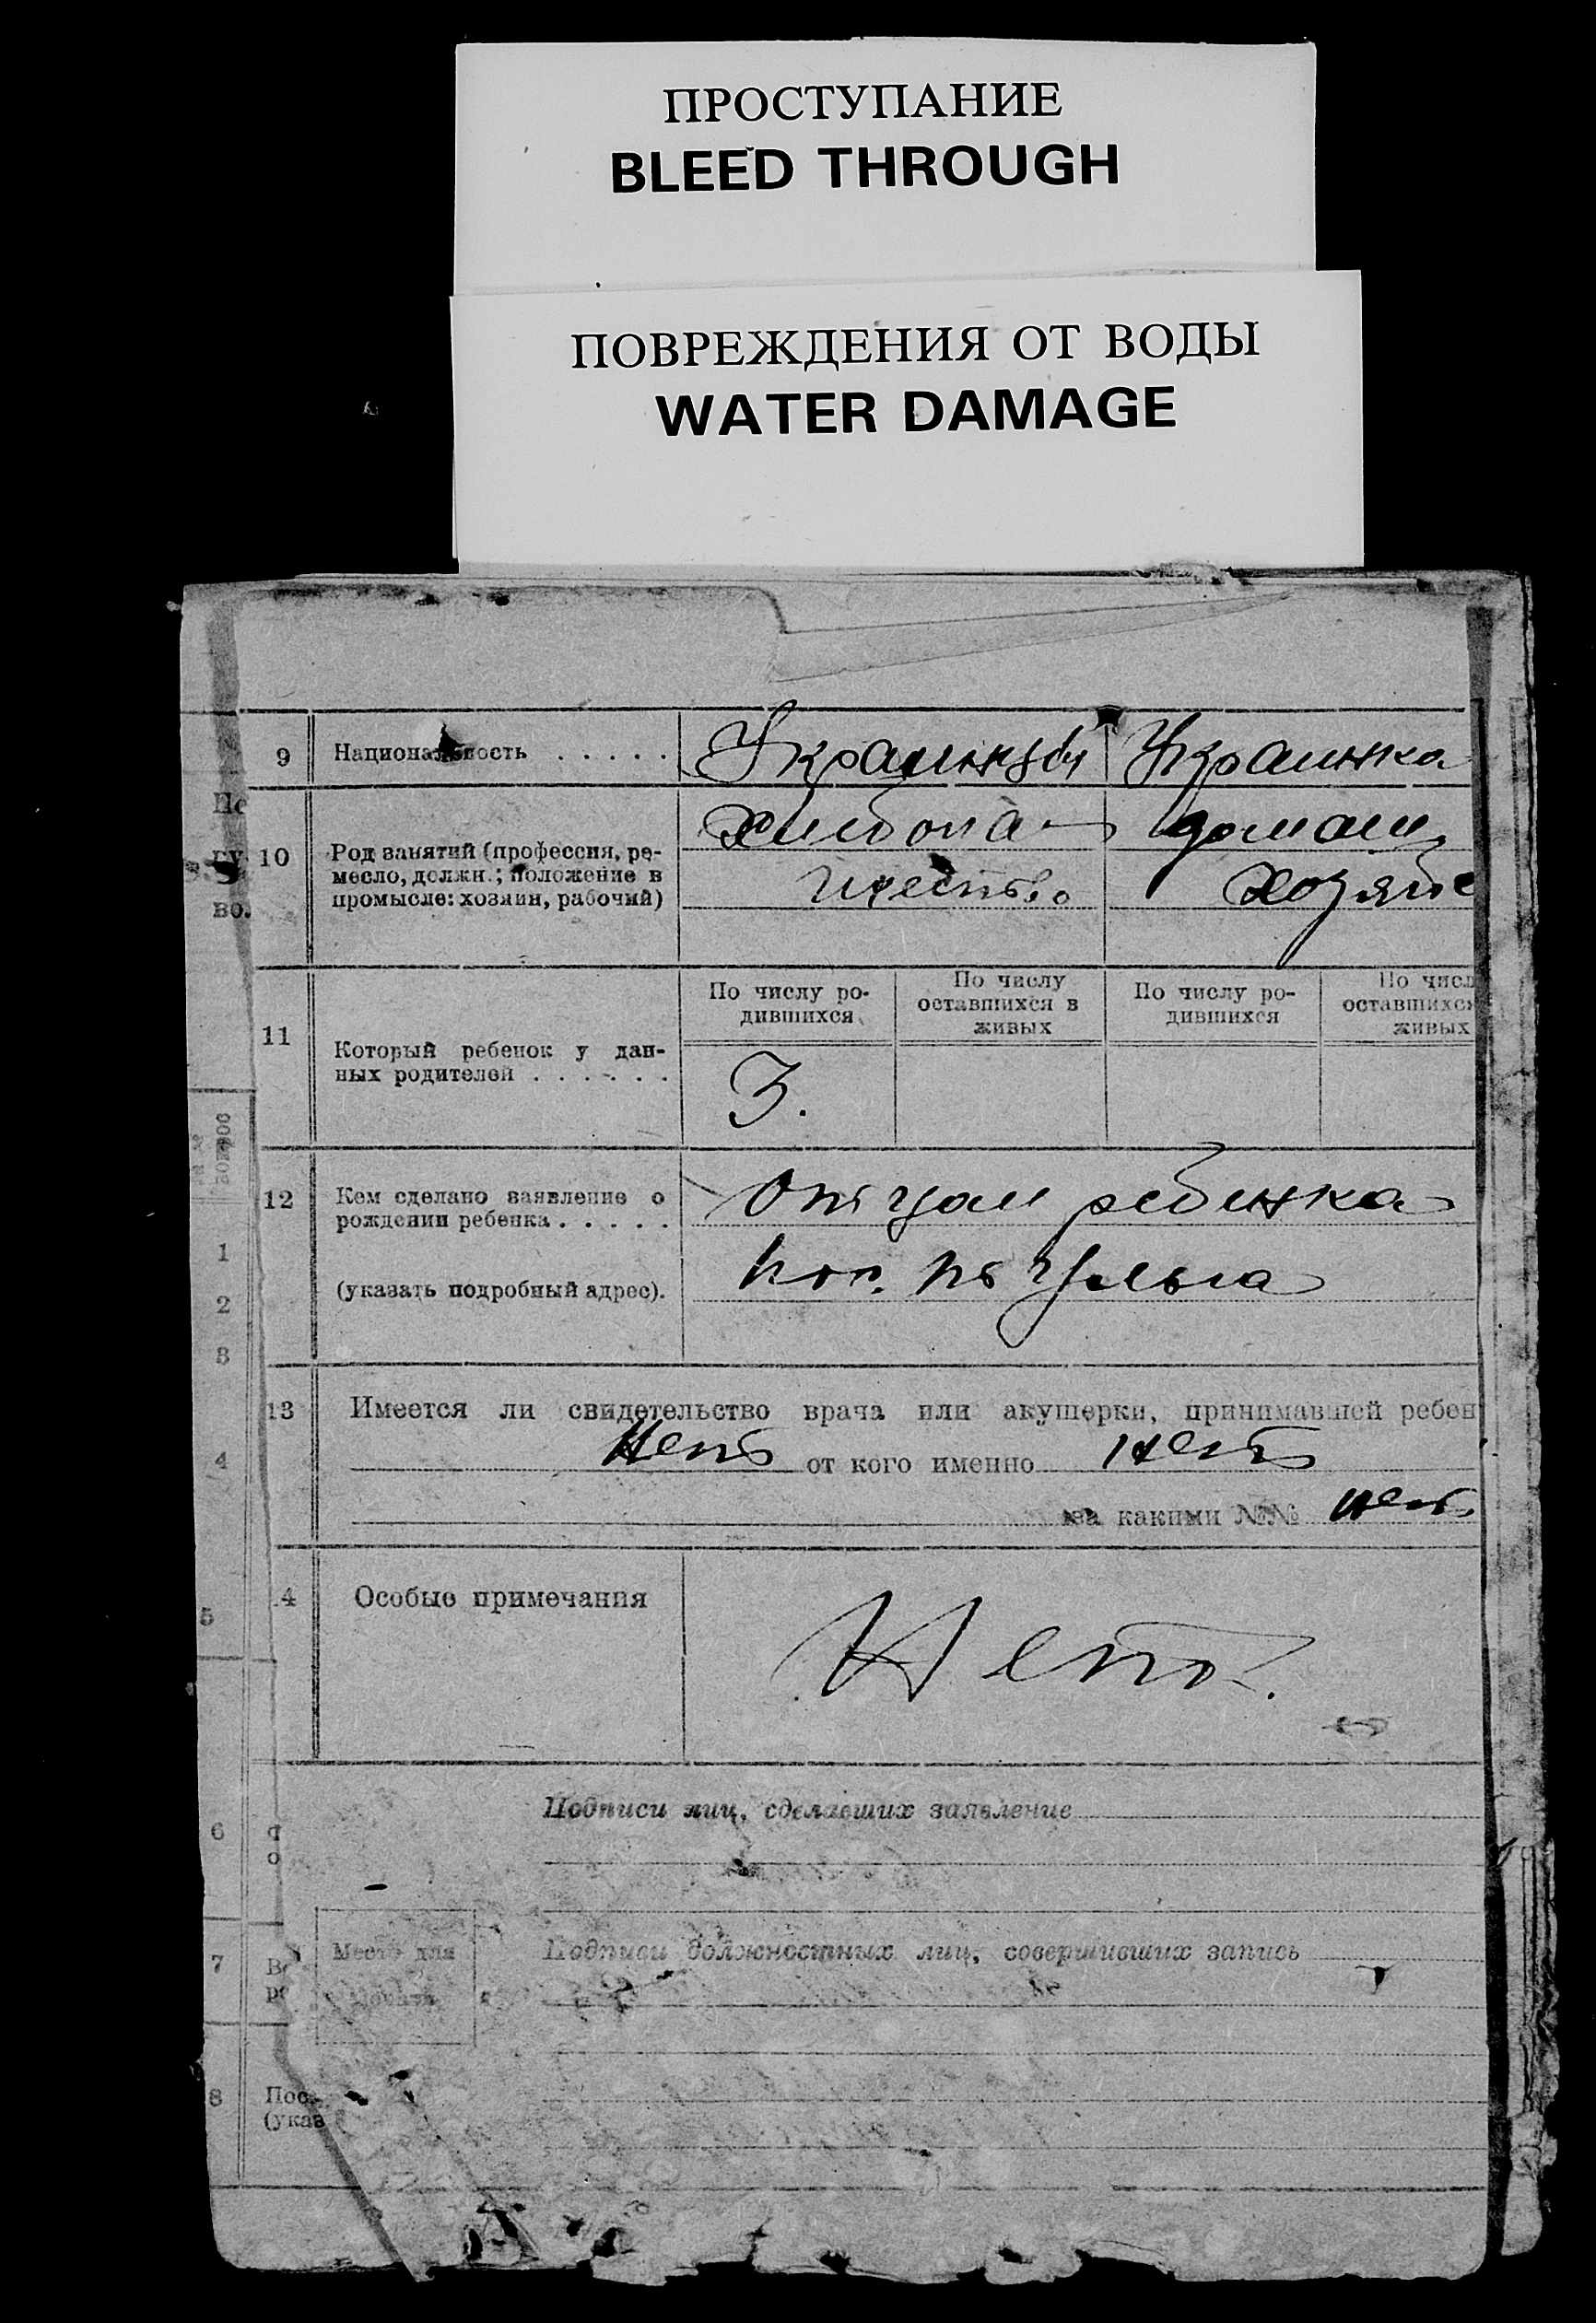 ПРОСТУПАНИЕ
BLEED THROUGH
ПОВРЕЖДЕНИЯ ОТ ВОДЫ
WATER DAMAGE
9 Национальность . . . . . Украинцы Украинка
10 Род занятий (профессия, ре-
месло, должн.; положение в
промысле: хозяин, рабочий)
домаш.
хозяйс
11 Который ребенок у дан-
ных родителей . . . . . .
По числу ро-
дившихся
По числу
оставшихся в
живых
По числу ро-
дившихся
По числ
оставшихся
живых
3.
12 Кем сделано заявление о
рождении ребенка . . . . .
(указать подробный адрес).
Отцом ребенка
пос.
13 Имеется ли свидетельство врача или акушерки, принимавшей ребен
Нет от кого именно Нет
за какими №№ нет
14 Особые примечания
Нет.
Подписи лиц, сделавших заявление
Место для
печати
Подписи должностных лиц, совершивших запись
во.
1
2
3
4
5
6
7
8 Пос
(указ